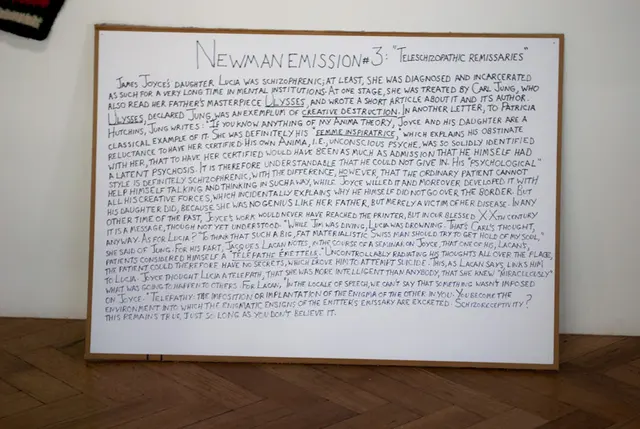 NEWMAN EMISSION #3: "TELESCHIZOPATHIC REMISSARIES"
JAMES JOYCE'S DAUGHTER LUCIA WAS SCHIZOPHRENIC; AT LEAST, SHE WAS DIAGNOSED AND INCARCERATED
AS SUCH FOR A VERY LONG TIME IN MENTAL INSTITUTIONS. AT ONE STAGE, SHE WAS TREATED BY CARL JUNG, WHO
ALSO READ HER FATHER'S MASTERPIECE ULYSSES, AND WROTE A SHORT ARTICLE ABOUT IT AND ITS AUTHOR.
ULYSSES, DECLARED JUNG, WAS AN EXEMPLUM OF CREATIVE DESTRUCTION. IN ANOTHER LETTER, TO PATRICIA
HUTCHINS, JUNG WRITES: "IF YOU KNOW ANYTHING OF MY ANIMA THEORY, JOYCE AND HIS DAUGHTER ARE A
CLASSICAL EXAMPLE OF IT. SHE WAS DEFINITELY HIS "FEMME INSPIRATRICE," WHICH EXPLAINS HIS OBSTINATE
RELUCTANCE TO HAVE HER CERTIFIED. HIS OWN ANIMA, I.E., UNCONSCIOUS PSYCHE, WAS SO SOLIDLY IDENTIFIED
WITH HER, THAT TO HAVE HER CERTIFIED WOULD HAVE BEEN AS MUCH AS ADMISSION THAT HE HIMSELF HAD
A LATENT PSYCHOSIS. IT IS THEREFORE UNDERSTANDABLE THAT HE COULD NOT GIVE IN. HIS "PSYCHOLOGICAL"
STYLE IS DEFINITELY SCHIZOPHRENIC, WITH THE DIFFERENCE, HOWEVER, THAT THE ORDINARY PATIENT CANNOT
HELP HIMSELF TALKING AND THINKING IN SUCH A WAY, WHILE JOYCE WILLED IT AND MOREOVER DEVELOPED IT WITH
ALL HIS CREATIVE FORCES, WHICH INCIDENTALLY EXPLAINS WHY HE HIMSELF DID NOT GO OVER THE BORDER. BUT
HIS DAUGHTER DID, BECAUSE SHE WAS NO GENIUS LIKE HER FATHER, BUT MERELY A VICTIM OF HER DISEASE. IN ANY
OTHER TIME OF THE PAST, JOYCE'S WORK WOULD NEVER HAVE REACHED THE PRINTER, BUT IN OUR BLESSED XXTH CENTURY
IT IS A MESSAGE, THOUGH NOT YET UNDERSTOOD." WHILE JIM WAS DIVING, LUCIA WAS DROWNING. THAT'S CARL'S THOUGHT,
ANYWAY. AS FOR LUCIA? "TO THINK THAT SUCH A BIG, FAT MATERIALISTIC SWISS MAN SHOULD TRY TO GET HOLD OF MY SOUL,"
SHE SAID OF JUNG. FOR HIS PART, JACQUES LACAN NOTES, IN THE COURSE OF A SEMINAR ON JOYCE, THAT ONE OF HIS, LACAN'S,
PATIENTS CONSIDERED HIMSELF A "TÉLÉPATHE ÉMETTEUR." UNCONTROLLABLY RADIATING HIS THOUGHTS ALL OVER THE PLACE,
THE PATIENT COULD THEREFORE HAVE NO SECRETS, WHICH DROVE HIM TO ATTEMPT SUICIDE. THIS, AS LACAN SAYS, LINKS HIM
TO LUCIA. JOYCE THOUGHT LUCIA A TELEPATH, THAT SHE WAS MORE INTELLIGENT THAN ANYBODY, THAT SHE KNEW "MIRACULOUSLY"
WHAT WAS GOING TO HAPPEN TO OTHERS. FOR LACAN, "IN THE LOCALE OF SPEECH, WE CAN'T SAY THAT SOMETHING WASN'T IMPOSED
ON JOYCE." TELEPATHY: THE IMPOSITION OR IMPLANTATION OF THE ENIGMA OF THE OTHER IN YOU. YOU BECOME THE
ENVIRONMENT INTO WHICH THE ENIGMATIC ENSIGNS OF THE EMITTER'S EMISSARY ARE EXCRETED. SCHIZORECEPTIVITY?
THIS REMAINS TRUE, JUST SO LONG AS YOU DON'T BELIEVE IT.